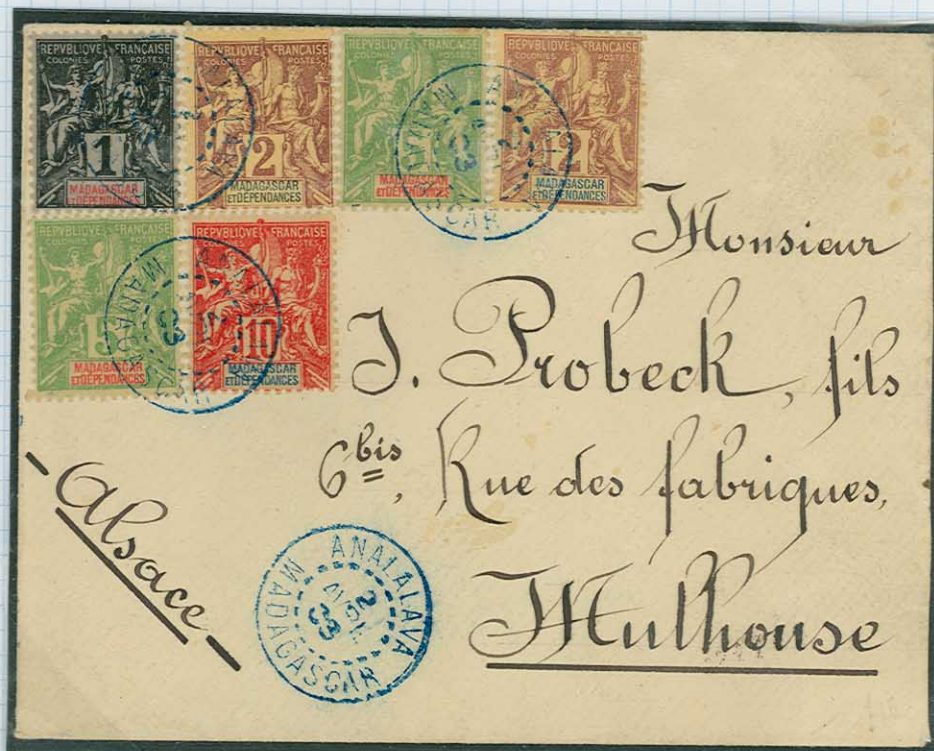 REPVBLIQVE FRANÇAISE
COLONIES POSTES
1
MADAGASCAR
ET DÉPENDANCES
REPVBLIQVE FRANÇAISE
2
MADAGASCAR
ET DÉPENDANCES
REPVBLIQVE FRANÇAISE
COLONIES POSTES
MADAGASCAR
ET DÉPENDANCES
REPVBLIQVE FRANÇAISE
COLONIES POSTES
2
MADAGASCAR
ET DÉPENDANCES
REPVBLIQVE FRANÇAISE
COLONIES POSTES
5
MADAGASCAR
ET DÉPENDANCES
REPVBLIQVE FRANÇAISE
COLONIES POSTES
10
MADAGASCAR
ET DÉPENDANCES
Monsieur
J. Probeck, fils
6 bis, Rue des fabriques,
Mulhouse
Alsace
ANALALAVA
2
AVRIL
03
MADAGASCAR